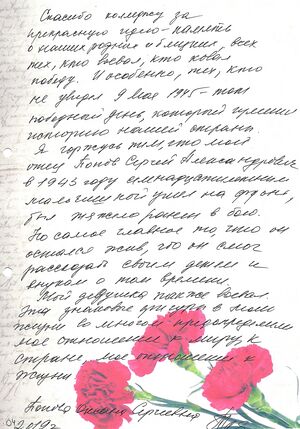 Спасибо колледжу за
прекрасную идею - память
о наших родных и близких, всех
тех, кто воевал, кто ковал
победу. И особенно, тех, кто
не увидел 9 мая 1945 - тот
победный день, который
историю нашей страны.
Я горжусь тем, что мой
отец Попов Сергей Александрович
в 1943 году семнадцатилетним
мальчишкой ушел на фронт,
был тяжело ранен в бою.
Но самое главное то, что он
остался жив, что он смог
рассказать своим детям и
внукам о том времени.
Мой дедушка также воевал.
Эти значимые в моей
жизни во многом предопределили
мое отношение к миру, к
стране, мое отношение к
жизни
Попова Сергеевна
2019г.